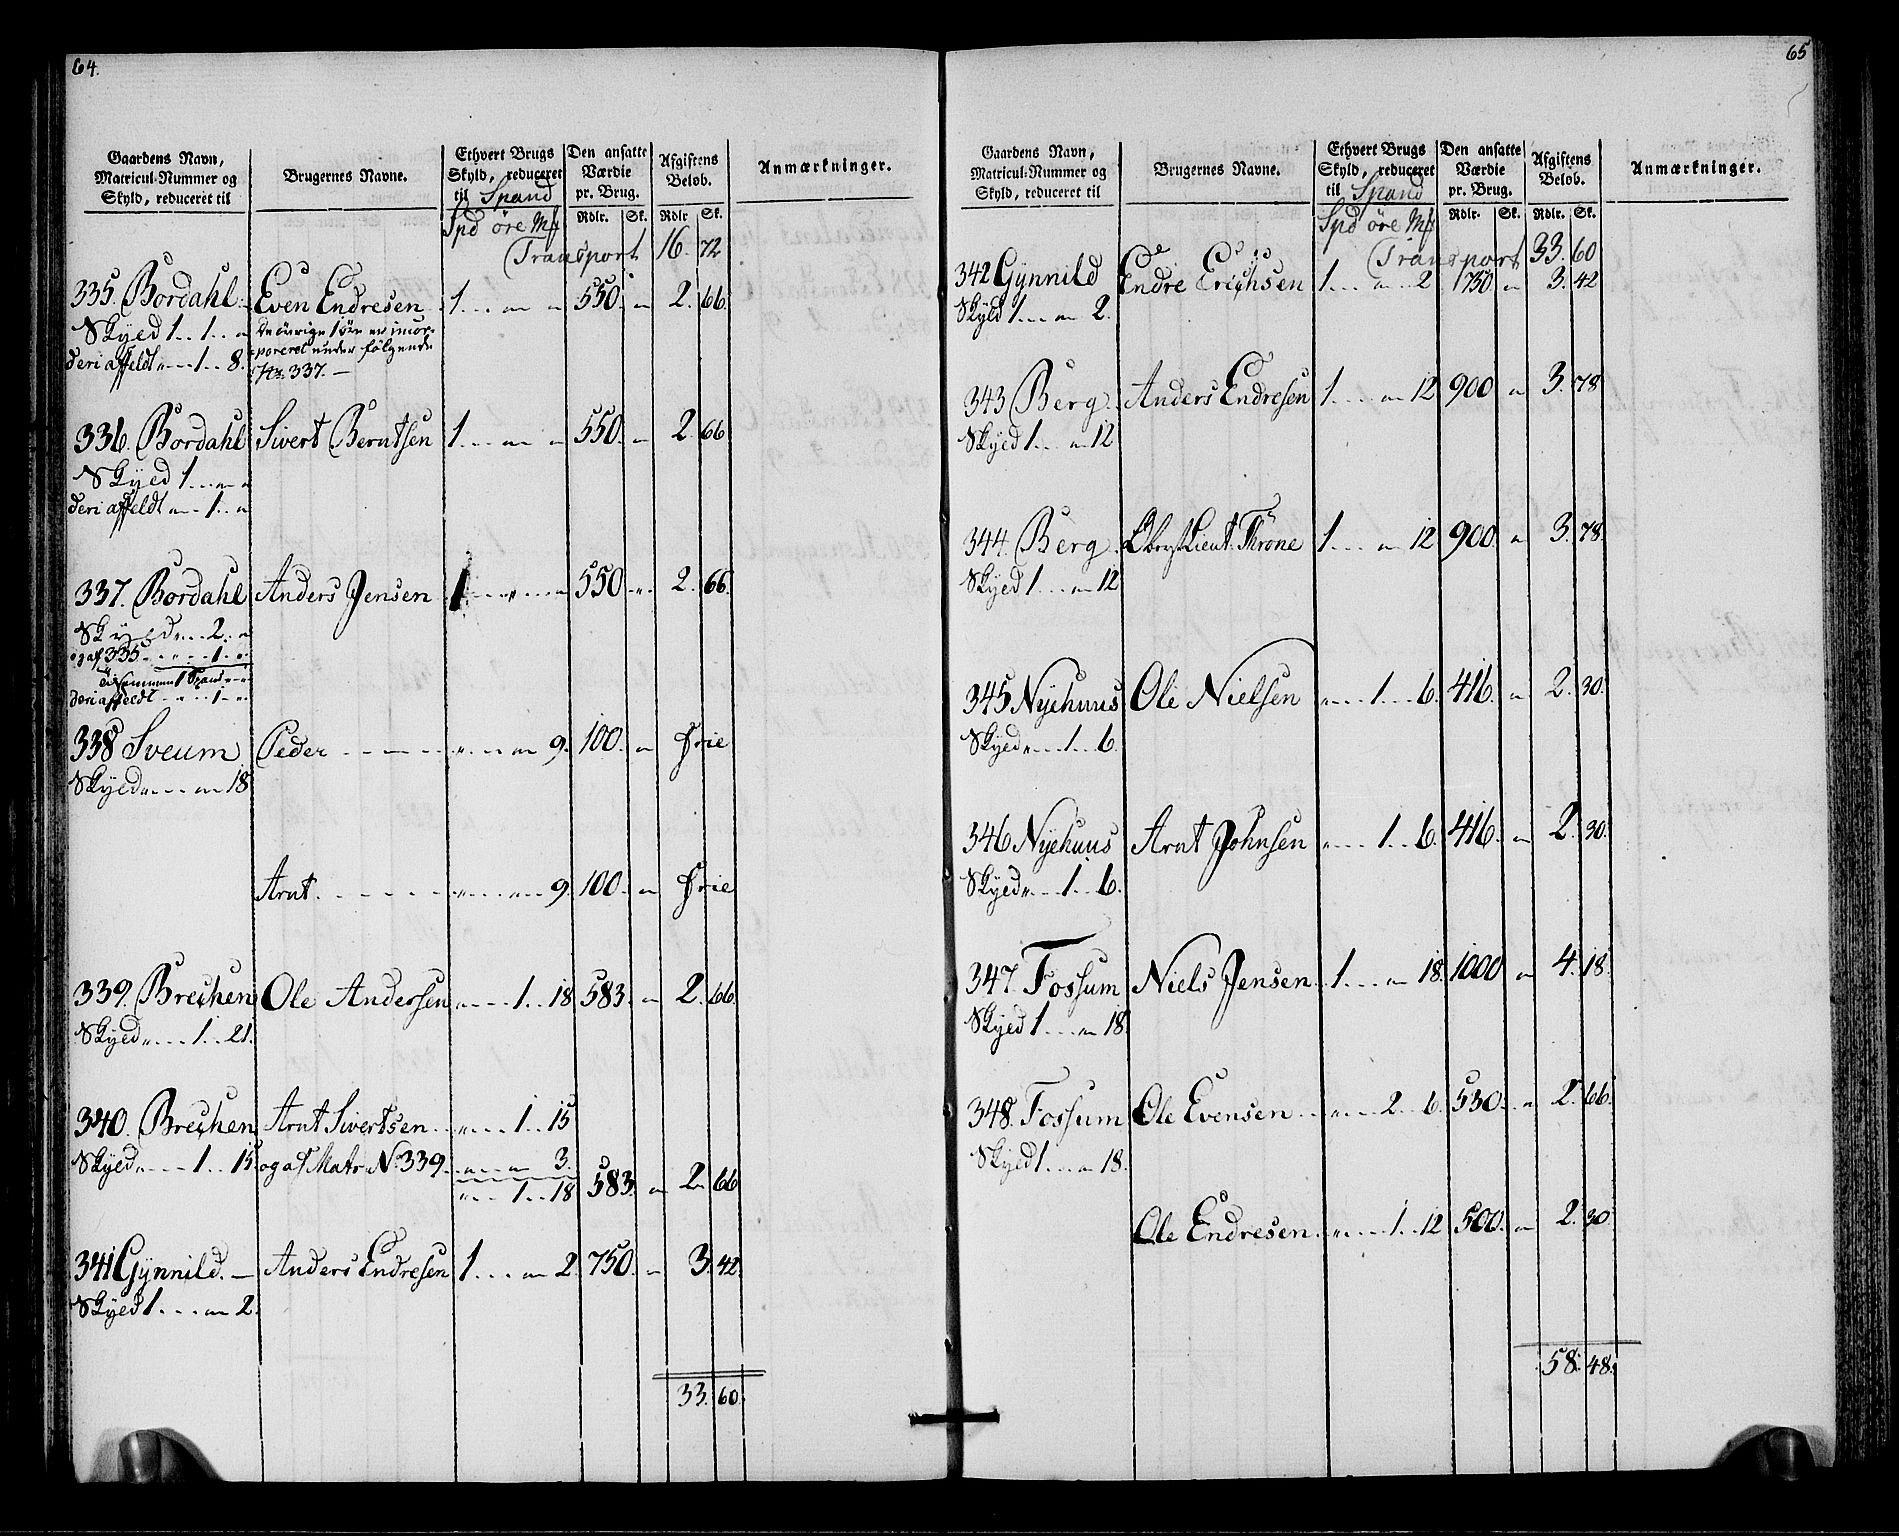 64.
Gaardens Navn, Matricul-Nummer og Skyld, reduceret til
Brugernes Navne.
Ethvert Brugs Skyld, reduceret til Spand
Den ansatte Værdie pr. Brug.
Afgiftens Beløb.
Anmærkninger.
Spd öre Mk Rdlr. Sk. Rdlr Sk.
Transport 16. 72
335. Bordahl. Even Endresen 1... " " 550. " 2. 66.
Skyed 1..1.. " De övrige 1 öre er incor-
deri affeldt "..1.. 8. poreret under følgende
No. 337. —
336. Bordahl Sivert Berntsen 1... " " 550. " 2. 66
Skyed 1... " "
deri affeldt " .. 1.. "
337. Bordahl Anders Jensen 1.... " .. " 550 " 2. 66.
Skyld "... 2. "
og af 335. .. " .. 1. "
Tilsammen 1 Spand " "
deri affeldt .. " .. 1 "
338 Sveum Peder - - - - " ... " 9. 100. " frie
Skyed " ... " 18
Arnt. - - - - " ... " 9. 100. " frie
339. Brechen Ole Andersen " ... 1.. 18 583. " 2. 66.
Skyed " ... 1.. 21.
340. Brechen Arnt Sivertsen .. " ... 1.. 15
Skyed " ... 1.. 15. og af Matr No. 339. .. " .. " 3.
" .. 1.. 18 583. " 2. 66
341 Gynnild. — Anders Endresen 1... " 2. 750. " 3. 42.
Skyed 1... " 2.
33. 60.
65
Gaardens Navn, Matricul-Nummer og Skyld, reduceret til
Brugernes Navne.
Ethvert Brugs Skyld, reduceret til Spand
Den ansatte Værdie pr. Brug.
Afgiftens Beløb.
Anmærkninger.
Spd öre Mk Rdlr. Sk. Rdlr. Sk.
Transport 33. 60
342 Gynnild Endre Erichsen 1... " .. 2 1750 " 3. 42
Skyld 1... " 2.
343 Berg. Anders Endresen 1... " 12 900 " 3. 78.
Skyed 1... " 12
344. Berg Obryst Lieut. Throne 1... " 12 900. " 3. 78.
Skyed 1... " 12
345 Nyehuus Ole Nielsen " ... 1... 6. 416. " 2. 30.
Skyed " ... 1.. 6.
346 Nyehuus Arnt Johnsen " ... 1.. 6. 416. " 2. 30.
Skyed " ... 1.. 6.
347. Fossum Niels Jensen 1... " 18. 1000 " 4. 18.
Skyed 1... " 18.
348. Fossum Ole Evensen .. " ... 2.. 6. 530. " 2. 66.
Skyed 1... " 18.
Ole Endresen. " ... 1.. 12 500. " 2. 30.
58. 48.